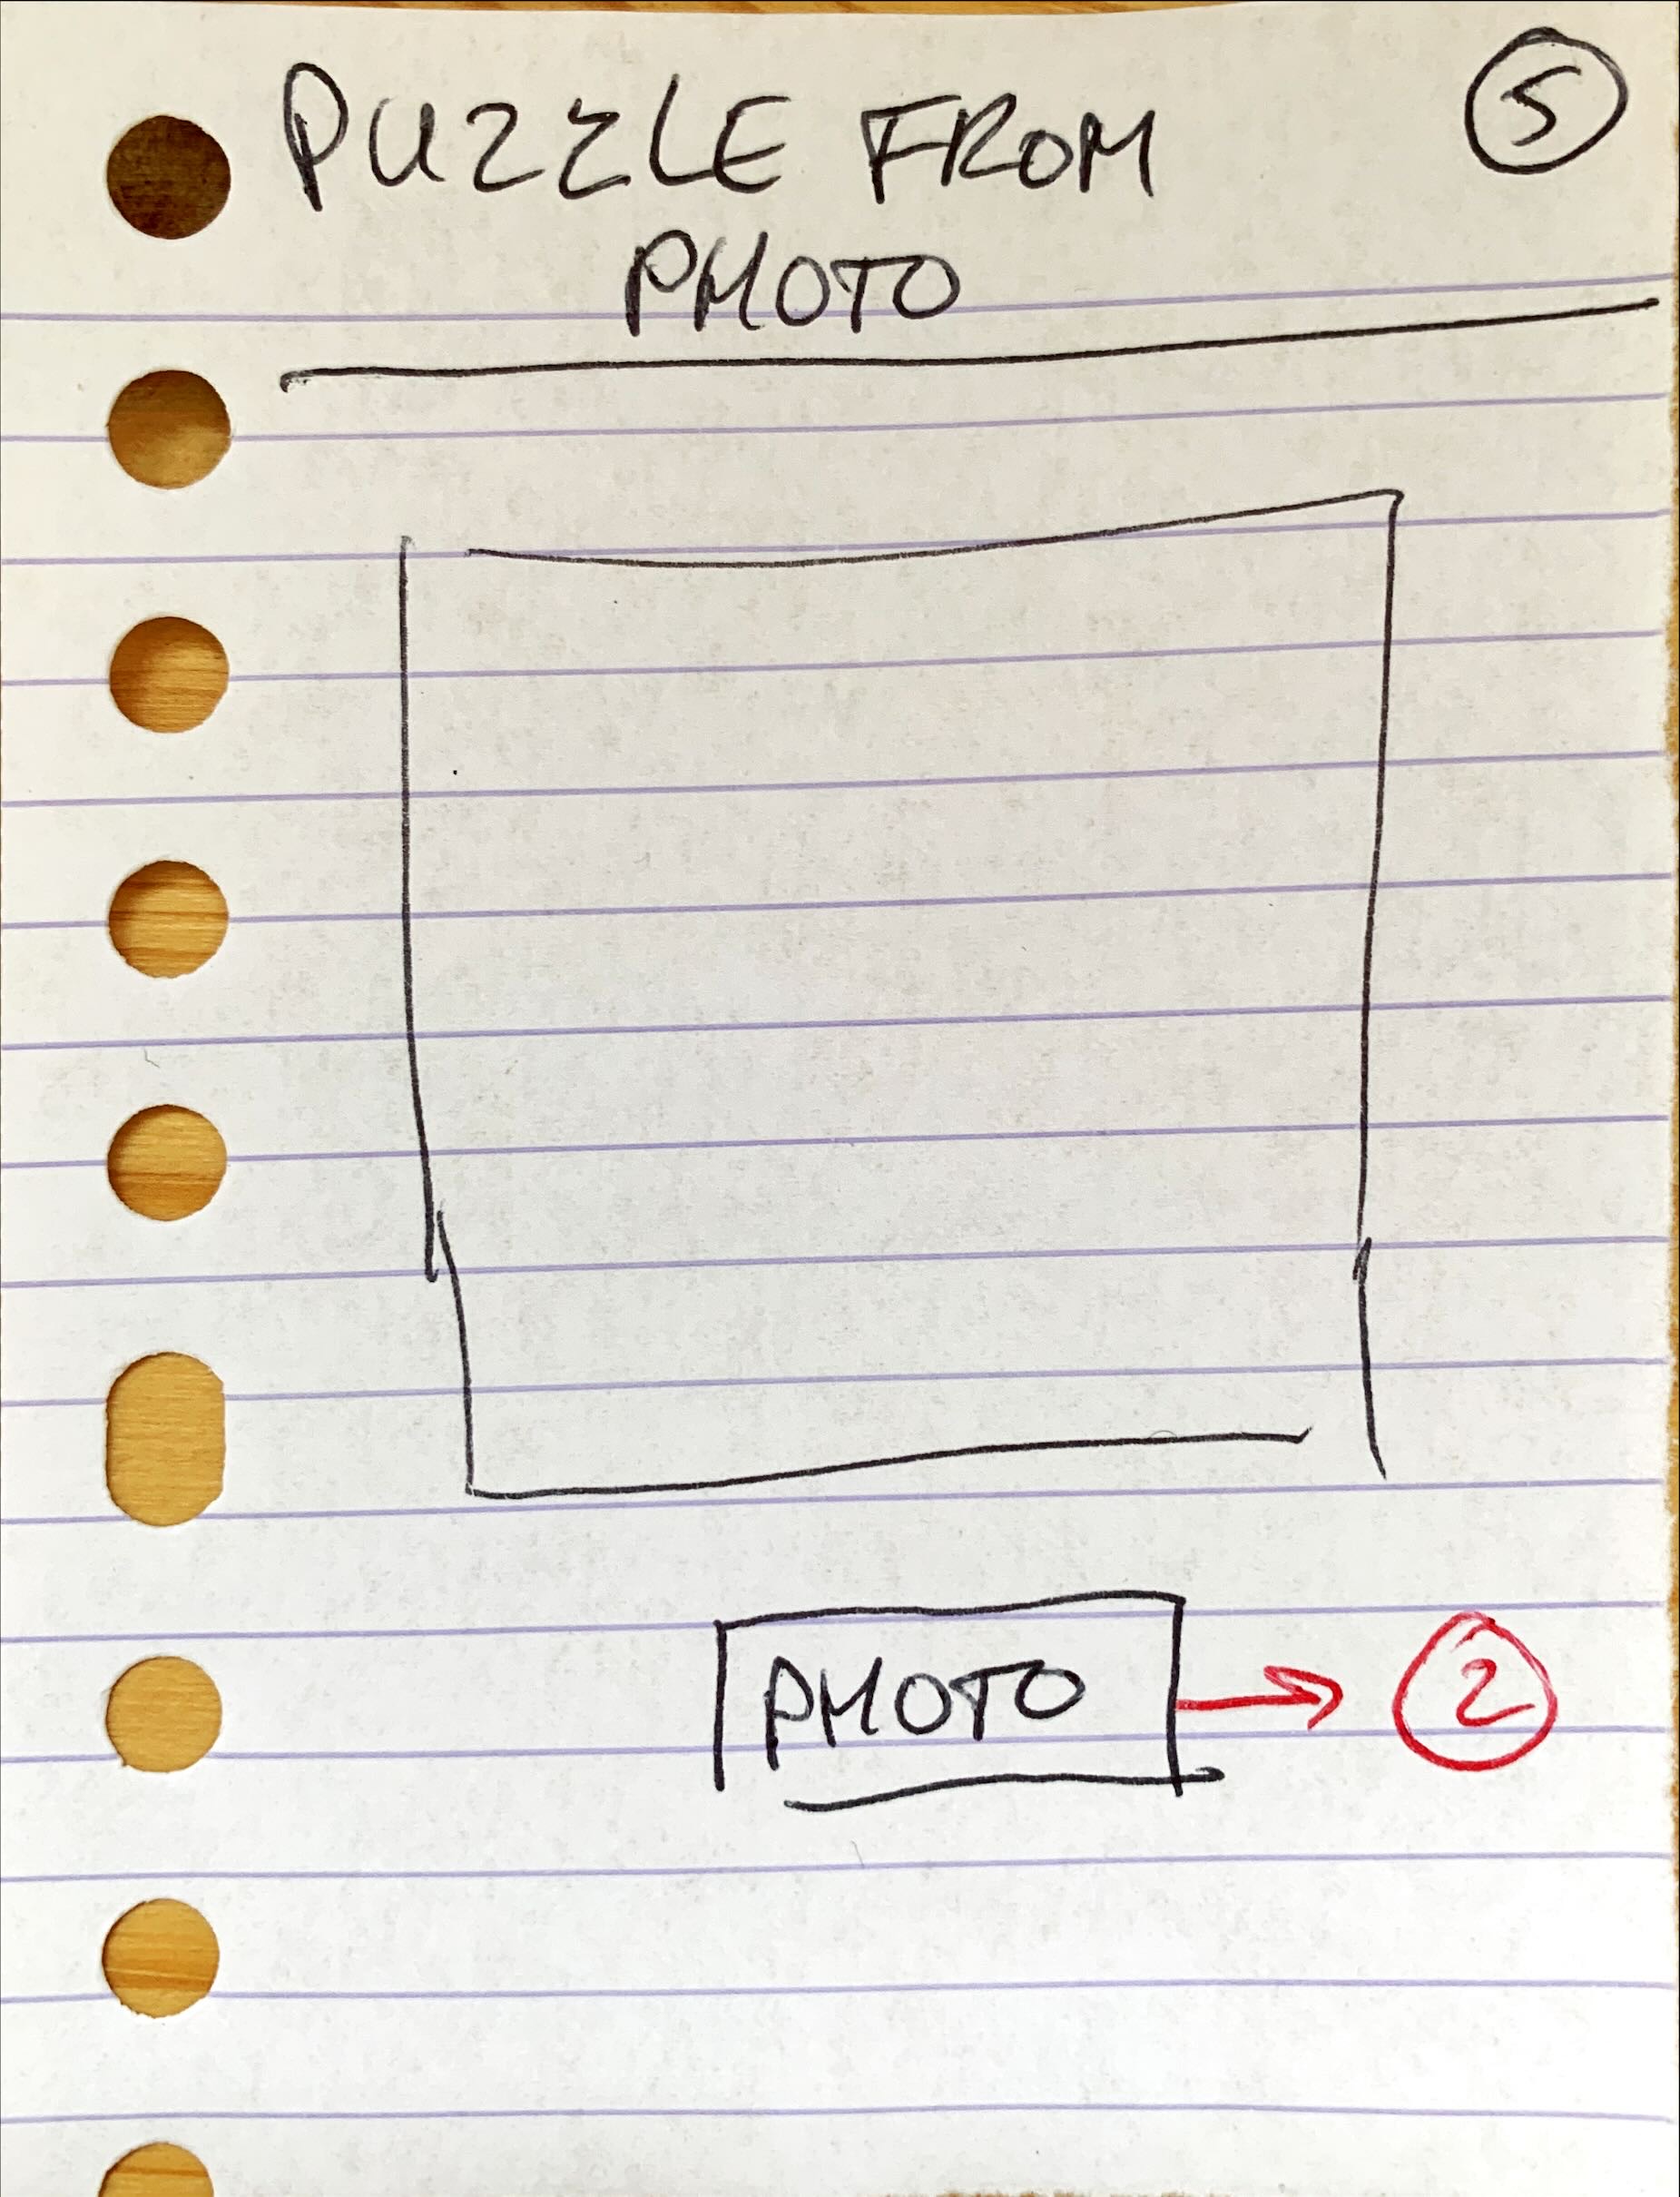 PUZZLE FROM
PHOTO
5
PHOTO
2